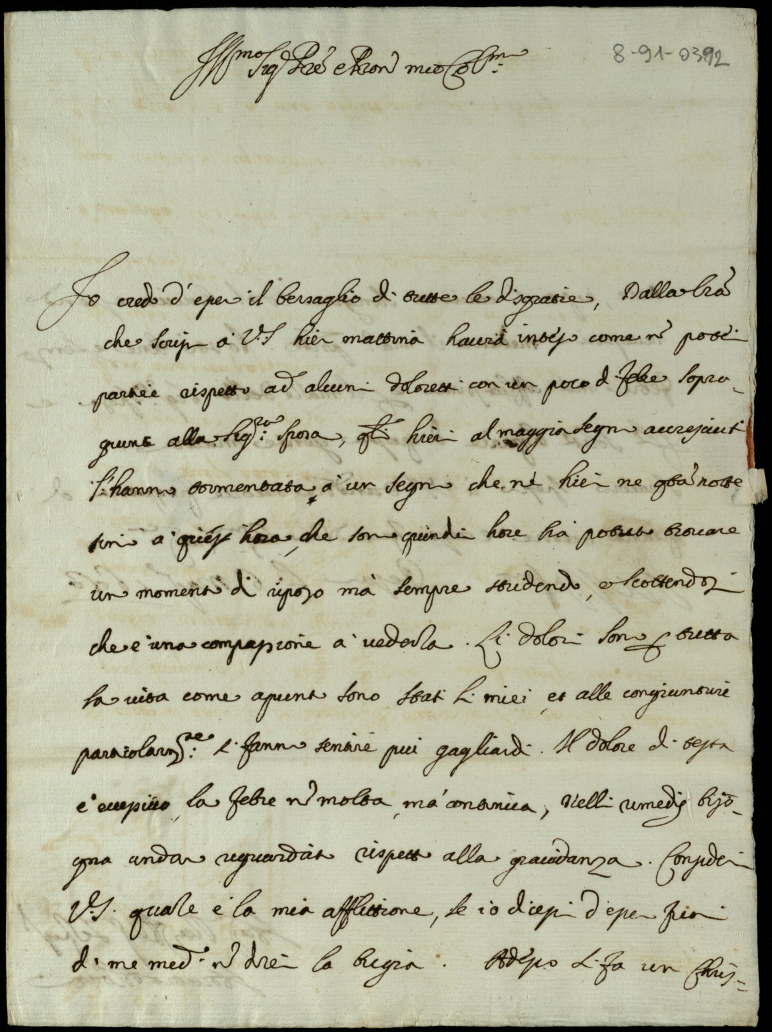 8-91-0392
Ill.mo Sig.r P're e P'ron mio Col.mo
Io credo d'esser il bersaglio di tutte le disgratie, Dalla l'ra
che scrissi à V.S hieri mattina haurà inteso come n'o potei
partire rispetto ad alcuni doloretti con un poco di febre sopra-
giunti alla Sig.ra sposa, q'li hieri al maggior segno accresciuti
l'hanno tormentata à un segno che nè hieri ne q'ta notte
sin à quest hora, che sono quindici hore hà potuto trovare
un momento di riposo mà sempre stridendo, e scottendosi
che è una compassione à vederla. Li dolori sono p tutta
la vita come apunto sono stati li miei, et alle congiunture
particolarm.te: si fanno sentire più gagliardi. Il dolore di testa
è eccessivo, la febre n'o molta, mà continua, Nelli rimedij biso-
gna andar riguardato rispetto alla gravidanza. Consideri
V.S. quale è la mia afflittione, se io dicessi d'esser fuori
di me med.o n'o direi la bugia. Adesso si fa un Chris-